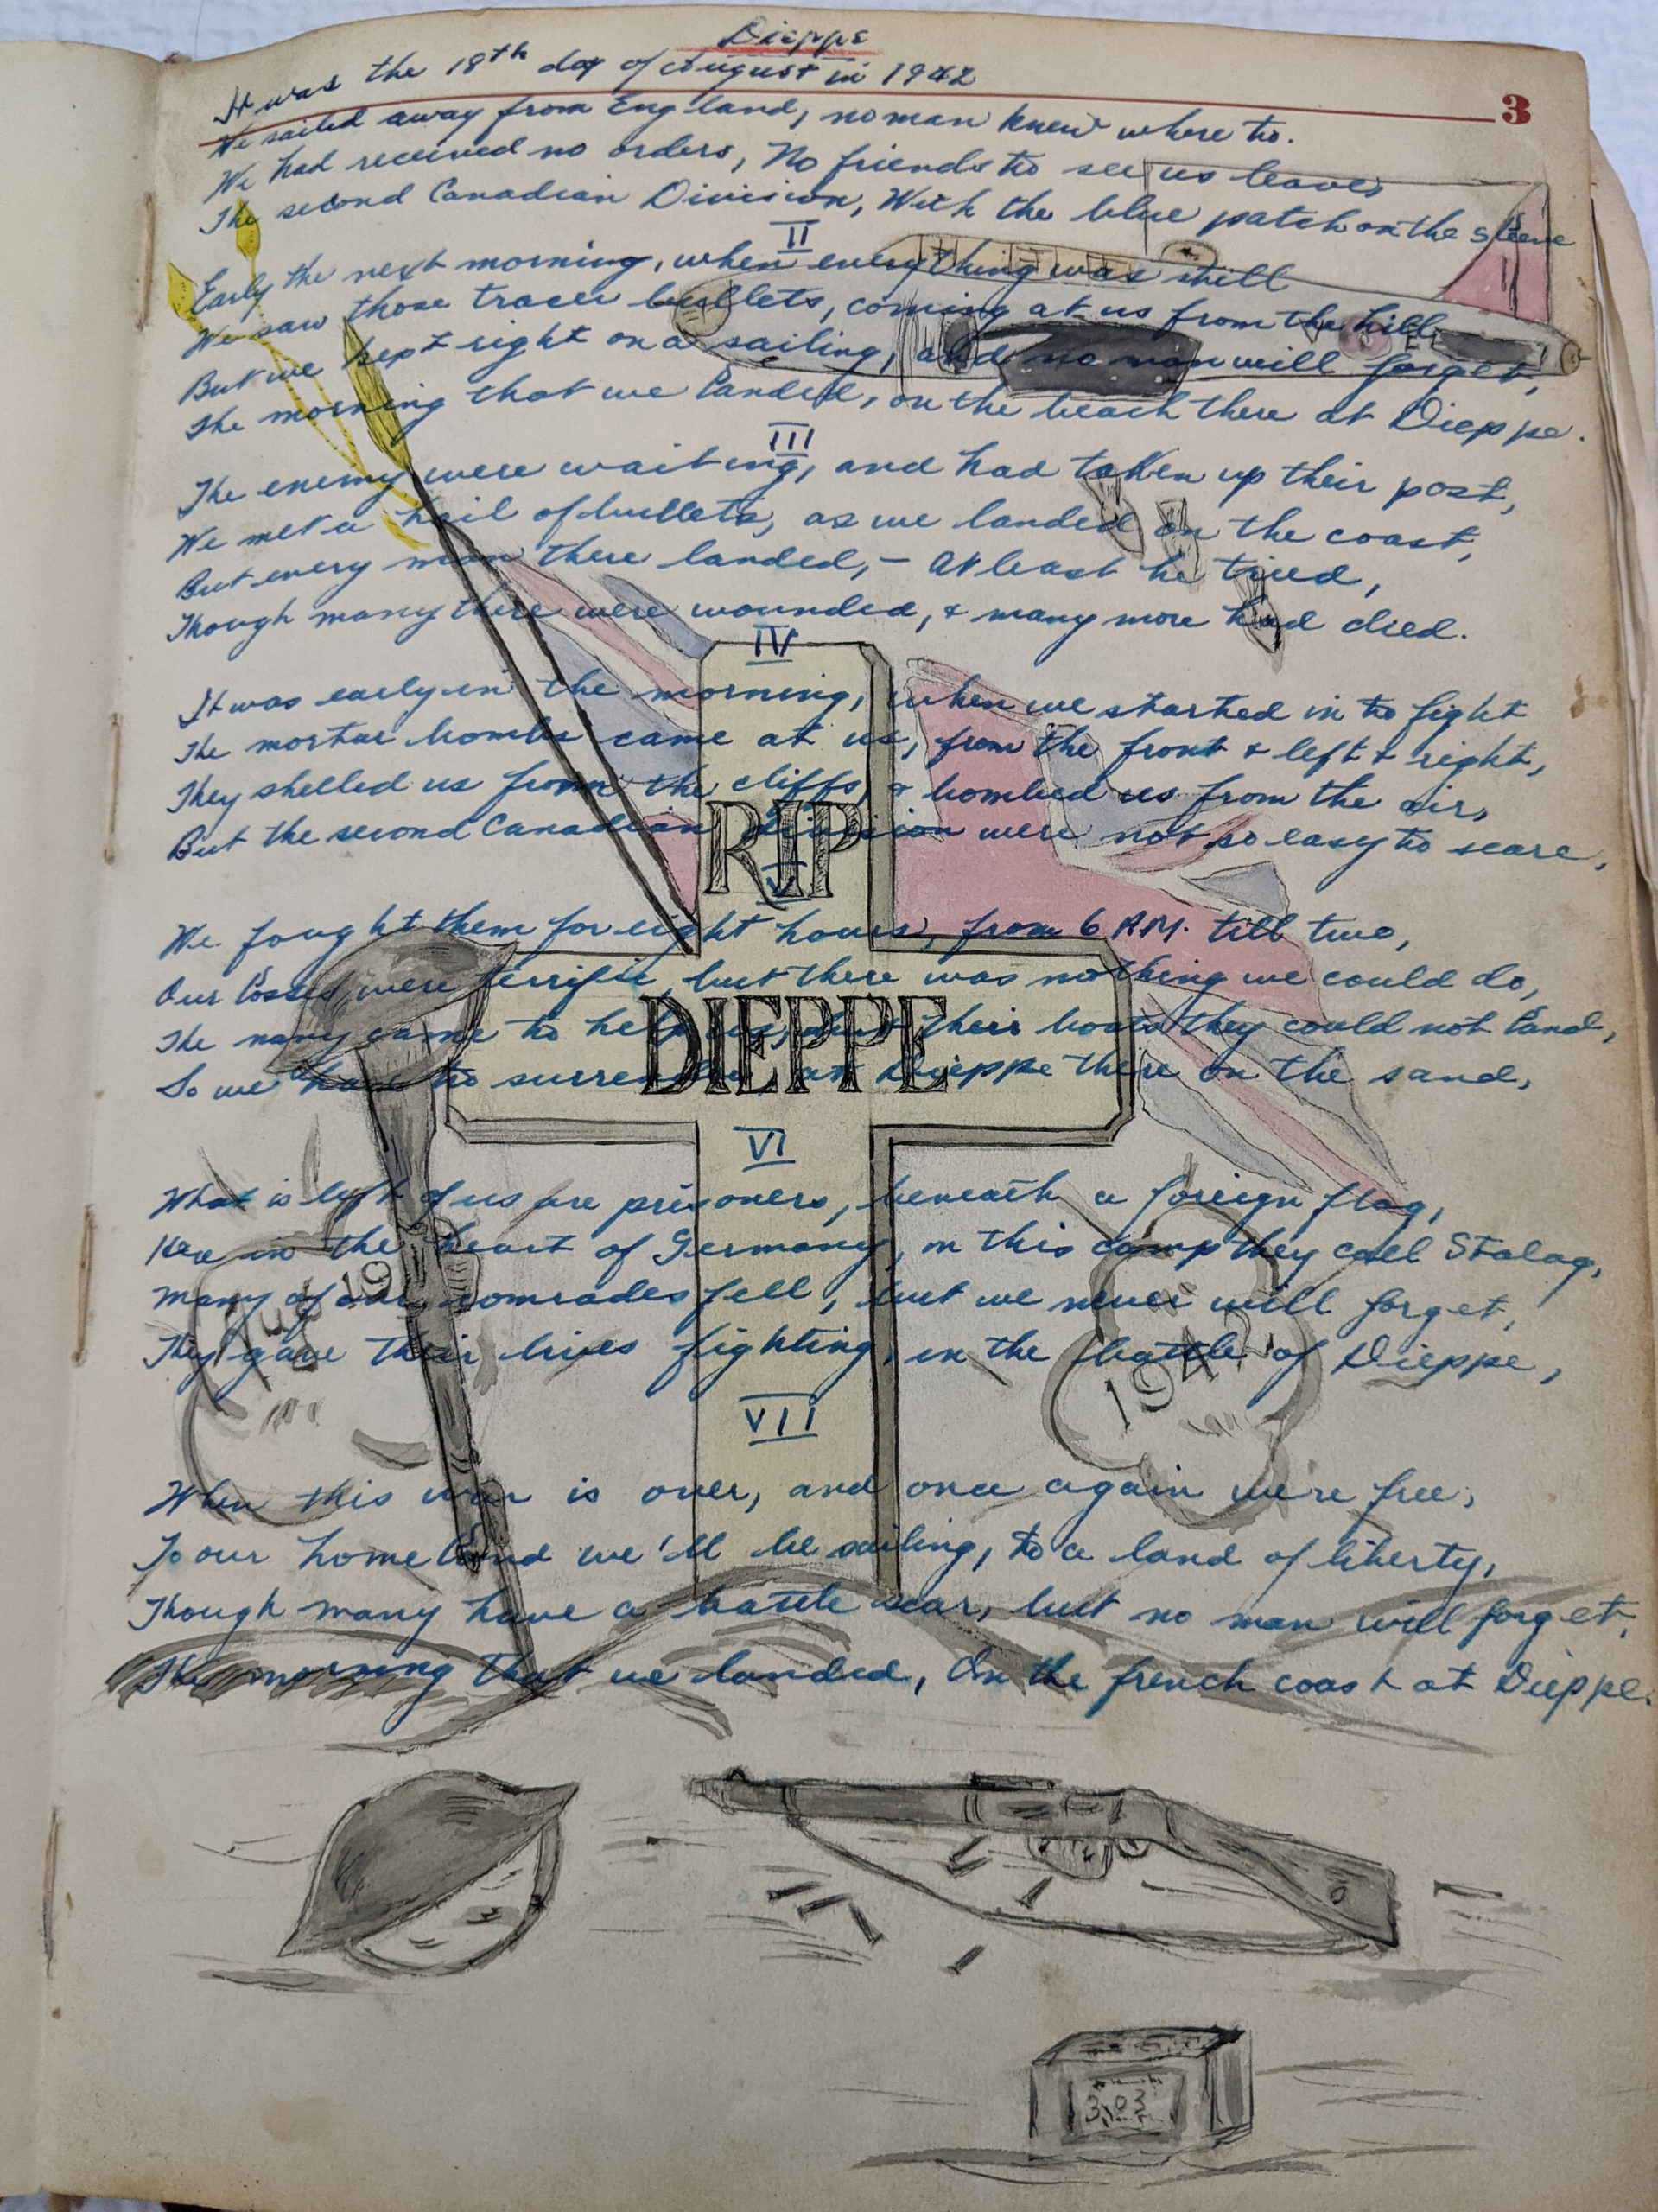 Dieppe
It was the 18th day of August in 1942
3
We sailed away from England, no man knew where to.
We had received no orders, No friends to see us leave,
The second Canadian Division, With the blue patch on the sleeve
II
Early the next morning, when everything was still
We saw those tracer bullets, coming at us from the hill,
But we kept right on a sailing, and no man will forget,
The morning that we landed, on the beach there at Dieppe.
III
The enemy were waiting, and had taken up their post,
We met a hail of bullets, as we landed on the coast,
But every man there landed, - At least he tried,
Though many there were wounded, & many more had died.
IV
It was early in the morning, when we started in to fight
The mortar bombs came at us, from the front & left & right,
They shelled us from the cliffs, & bombed us from the air,
But the second Canadian Division were not so easy to scare,
RIP
V
We fought them for eight hours, from 6 A.M. till two,
Our losses were terrific, but there was nothing we could do,
The navy came to help us, but their boats they could not land,
So we had to surrender, at Dieppe there on the sand,
DIEPPE
VI
What is left of us are prisoners, beneath a foreign flag,
Here in the heart of Germany, in this camp they call Stalag,
Many of our comrades fell, but we never will forget,
They gave their lives fighting, in the battle of Dieppe,
Aug 19
1942
VII
When this war is over, and once again we're free,
To our homeland we'll be sailing, to a land of liberty,
Though many have a battle scar, but no man will forget,
The morning that we landed, On the french coast at Dieppe.
3,03